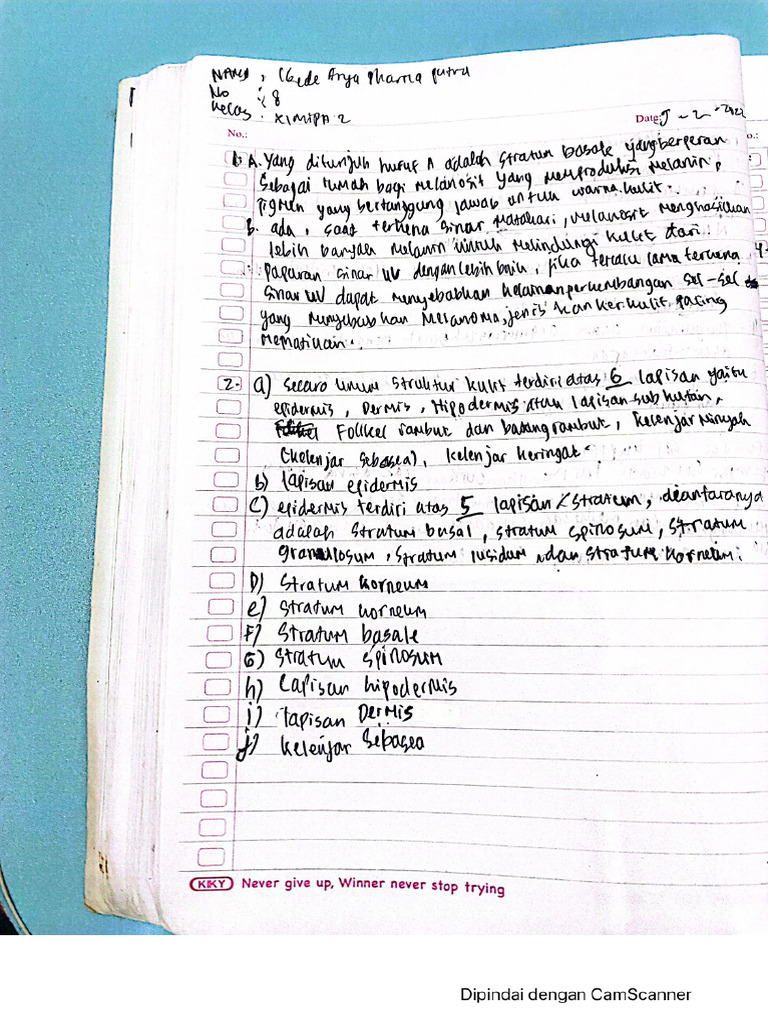 Nama : I Gede Arya Dharma putra
No : 8
Kelas : XI MIPA 2
Date: 5 - 2 - 2022
No.:
1. A. Yang ditunjuk huruf A adalah stratum basale yang berperan
sebagai rumah bagi melanosit yang memproduksi melanin,
pigmen yang bertanggung jawab untuk warna kulit.
b. ada, saat terkena sinar matahari, melanosit menghasilkan
lebih banyak melanin untuk melindungi kulit dari
paparan sinar UV dengan lebih baik, jika terlalu lama terkena
sinar UV dapat menyebabkan kelainan perkembangan sel-sel
yang menyebabkan melanoma, jenis kanker kulit paling
mematikan.
2. a) secara umum struktur kulit terdiri atas 6 lapisan yaitu
epidermis, Dermis, Hipodermis atau lapisan subkutan,
Folikel rambut dan batang rambut, kelenjar minyak
(kelenjar sebasea), kelenjar keringat.
b) lapisan epidermis
c) epidermis terdiri atas 5 lapisan / stratum, diantaranya
adalah stratum basal, stratum spinosum, stratum
granulosum, stratum lusidum dan stratum korneum.
D) stratum korneum
e) stratum korneum
F) stratum basale
G) stratum spinosum
h) Lapisan hipodermis
i) lapisan Dermis
j) kelenjar sebasea
KIKY Never give up, Winner never stop trying
Dipindai dengan CamScanner